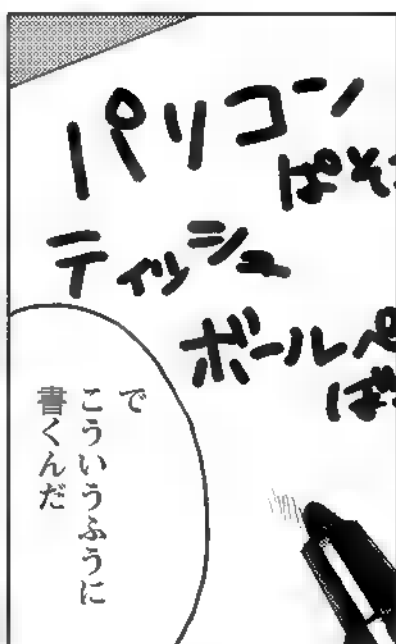 パソコン
ぱそ
ティッシュ
ボールペ
で
こういうふうに
書くんだ